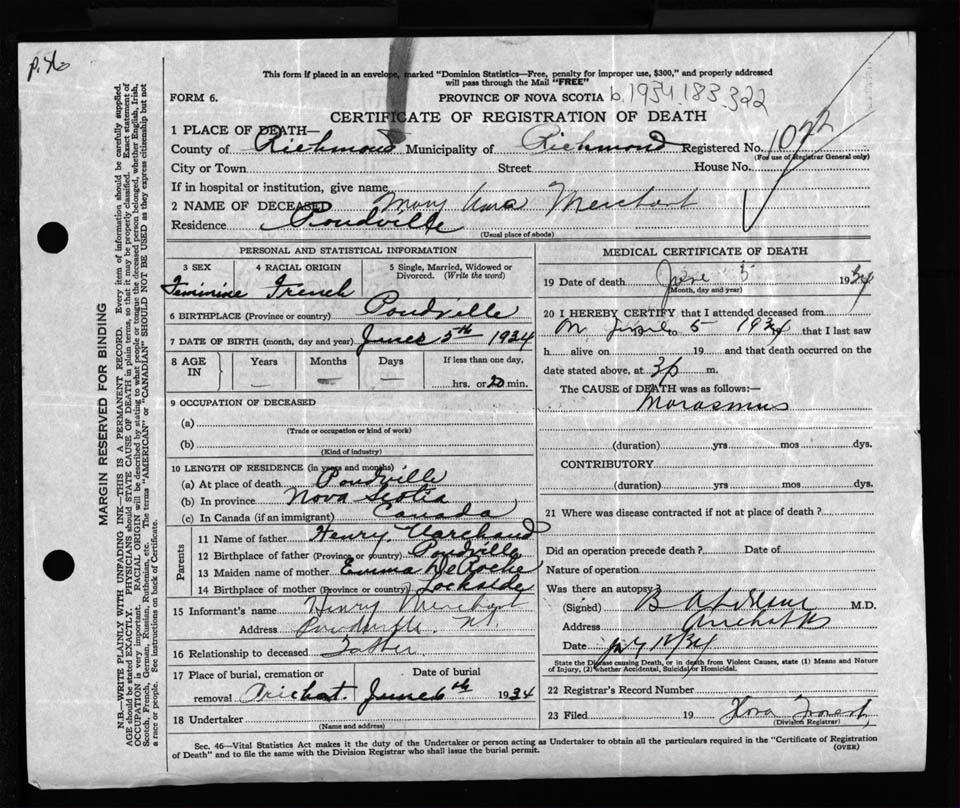 p. 76
This form if placed in an envelope, marked "Dominion Statistics—Free, penalty for improper use, $300," and properly addressed
will pass through the Mail "FREE"
FORM 6.
PROVINCE OF NOVA SCOTIA b.1934.183.322
CERTIFICATE OF REGISTRATION OF DEATH
1 PLACE OF DEATH—
County of Richmond Municipality of Richmond Registered No. 1022
(For use of Registrar General only)
City or Town Street House No.
If in hospital or institution, give name
2 NAME OF DECEASED Mary Merchart
Residence Poudville
(Usual place of abode)
PERSONAL AND STATISTICAL INFORMATION
3 SEX 4 RACIAL ORIGIN 5 Single, Married, Widowed or
Divorced. (Write the word)
Feminine French
6 BIRTHPLACE (Province or country) Poudville
7 DATE OF BIRTH (month, day and year) June 5th 1934
8 AGE IN Years Months Days If less than one day,
— — — hrs. or 20 min.
9 OCCUPATION OF DECEASED
(a)
(Trade or occupation or kind of work)
(b)
(Kind of industry)
10 LENGTH OF RESIDENCE (in years and months)
(a) At place of death Poudville
(b) In province Nova Scotia
(c) In Canada (if an immigrant) Canada
Parents
11 Name of father Henry Marchand
12 Birthplace of father (Province or country) Poudville
13 Maiden name of mother Emma DeRoche
14 Birthplace of mother (Province or country) Lochside
15 Informant's name Henry Merchart
Address Poudville
16 Relationship to deceased Father
17 Place of burial, cremation or Date of burial
removal Arichat. June 6th 1934
18 Undertaker
(Name and address)
MEDICAL CERTIFICATE OF DEATH
19 Date of death June 5 1934
(Month, day and year)
20 I HEREBY CERTIFY that I attended deceased from
to 5 1934 that I last saw
h alive on 19 and that death occurred on the
date stated above, at 3 p m.
The CAUSE of DEATH was as follows:—
Marasmus
(duration) yrs mos dys.
CONTRIBUTORY
(duration) yrs mos dys.
21 Where was disease contracted if not at place of death?
Did an operation precede death? Date of
Nature of operation
Was there an autopsy?
(Signed) M.D.
Address Arichat
Date
State the Disease causing Death, or in death from Violent Causes, state (1) Means and Nature
of Injury, (2) whether Accidental, Suicidal or Homicidal.
22 Registrar's Record Number
23 Filed 19
(Division Registrar)
Sec. 46—Vital Statistics Act makes it the duty of the Undertaker or person acting as Undertaker to obtain all the particulars required in the "Certificate of Registration
of Death" and to file the same with the Division Registrar who shall issue the burial permit.
(OVER)
MARGIN RESERVED FOR BINDING
N.B.—WRITE PLAINLY WITH UNFADING INK—THIS IS A PERMANENT RECORD. Every item of information should be carefully supplied.
AGE should be stated EXACTLY. PHYSICIANS should STATE CAUSE OF DEATH in plain terms, so that it may be properly classified. Exact statement of
OCCUPATION is very important. RACIAL ORIGIN will be described by stating to what people or tongue the deceased person belonged, whether English, Irish,
Scotch, French, German, Russian, Ruthenian, etc. The terms "AMERICAN" or "CANADIAN" SHOULD NOT BE USED as they express citizenship but not
a race or people. See instructions on back of Certificate.